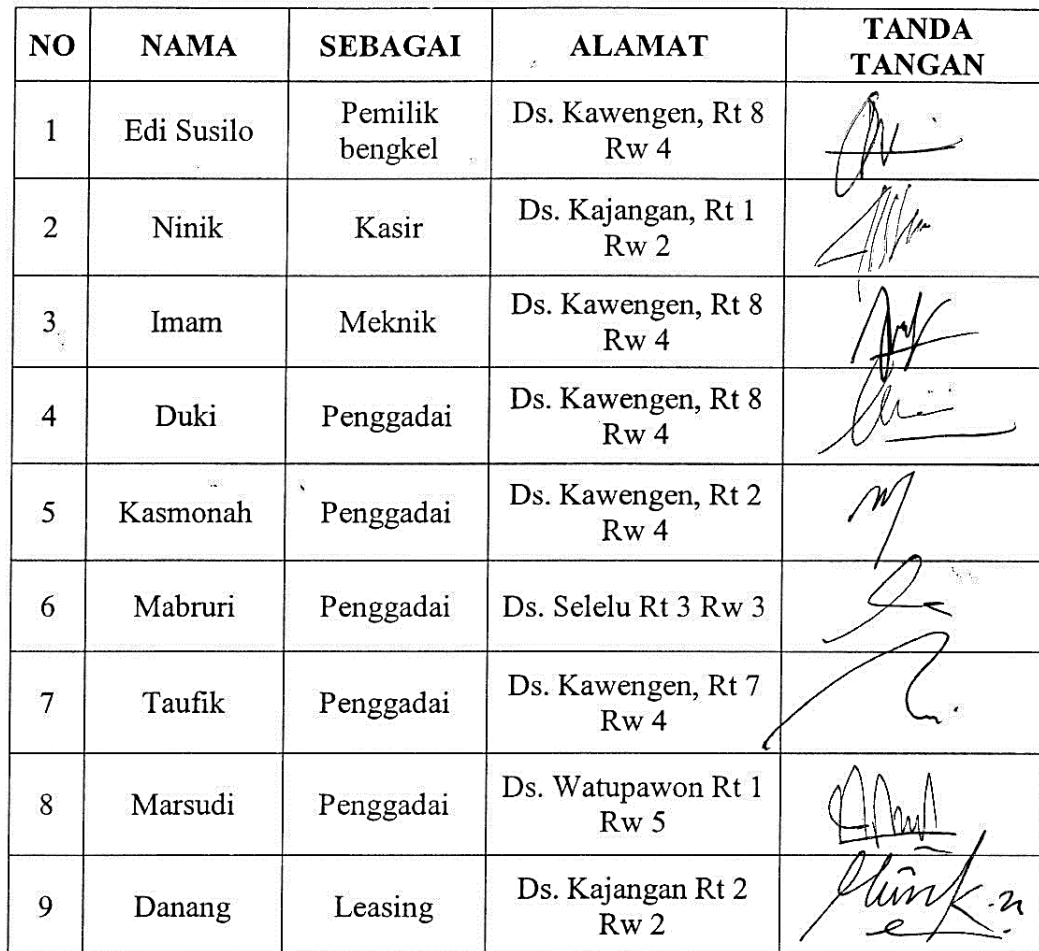 NO NAMA SEBAGAI ALAMAT TANDA
TANGAN
1 Edi Susilo Pemilik
bengkel Ds. Kawengen, Rt 8
Rw 4
2 Ninik Kasir Ds. Kajangan, Rt 1
Rw 2
3 Imam Meknik Ds. Kawengen, Rt 8
Rw 4
4 Duki Penggadai Ds. Kawengen, Rt 8
Rw 4
5 Kasmonah Penggadai Ds. Kawengen, Rt 2
Rw 4
6 Mabruri Penggadai Ds. Selelu Rt 3 Rw 3
7 Taufik Penggadai Ds. Kawengen, Rt 7
Rw 4
8 Marsudi Penggadai Ds. Watupawon Rt 1
Rw 5
9 Danang Leasing Ds. Kajangan Rt 2
Rw 2